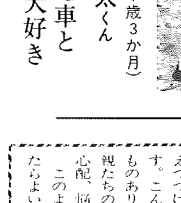 歳3か月)
太くん
車と
大好き
えつづけ
す。こん
ものあり
親たちの
心配、悩
このよ
たらよい